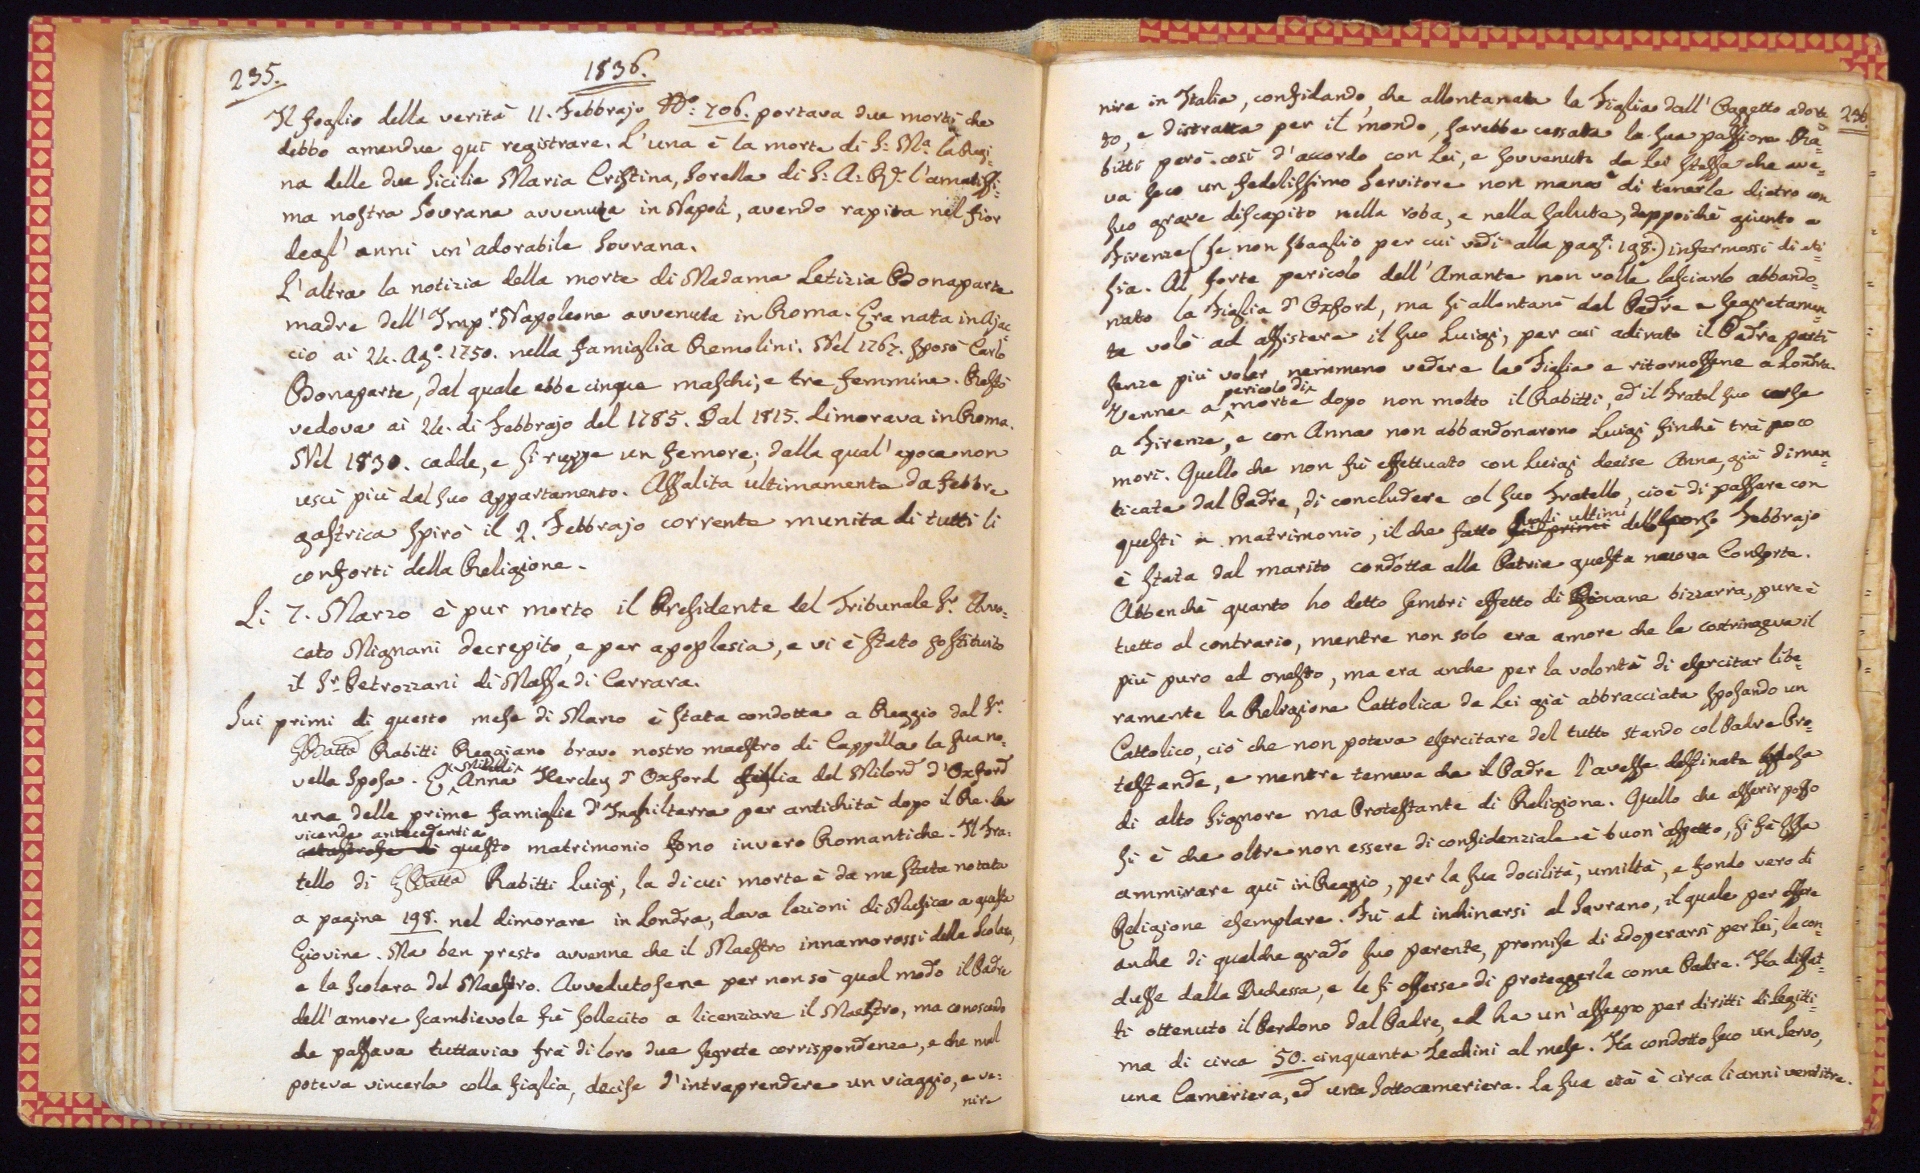 235.
1836.
Il foglio della verità 11. Febbrajo No: 706. portava due morti che
debbo amendue quì registrare. L'una è la morte di S: Ma. la Regi:
na delle due Sicilie Maria Cristina, Sorella di S: A: R. l'amatissi:
ma nostra Sovrana avvenuta in Napoli, avendo rapita nel fior
degl' anni un'adorabile Sovrana.
L'altra la notizia della morte di Madama Letizia Bonaparte
madre dell'Impr. Napoleone avvenuta in Roma. Era nata in Ajac:
cio ai 24. Ago. 1750. nella famiglia Remolini. Nel 1767. sposò Carlo
Bonaparte, dal quale ebbe cinque maschi, e tre femmine. Restò
vedova ai 24. di Febbrajo del 1785. Dal 1815. dimorava in Roma.
Nel 1830. cadde, e si ruppe un femore; dalla qual'epoca non
uscì più dal suo appartamento. Assalita ultimamente da febbre
gastrica spirò il 2. Febbrajo corrente munita di tutti li
conforti della Religione.
Li 7. Marzo è pur morto il Presidente del Tribunale Sr. Avvo:
cato Mignani decrepito, e per apoplesia, e vi è stato sostituito
il Sr. Petrozzani di Massa di Carrara.
Sui primi di questo mese di Marzo è stata condotta a Reggio dal Sr.
GBatta Rabitti Reggiano bravo nostro maestro di Cappella la sua no:
vella sposa. È Miledi Anna Herley d'Oxford figlia del Milord d'Oxford
una delle prime famiglie d'Inghilterra per antichità dopo il Re. Le
vicende antecedenti a
catastrofe di questo matrimonio sono invero Romantiche. Il Fra:
tello di GBatta Rabitti Luigi, la di cui morte è da me stata notata
a pagina 198. nel dimorare in Londra, dava lezioni di Musica a questa
Giovine. Ma ben presto avvenne che il Maestro innamorossi della Scolara,
e la Scolara del Maestro. Avvedutosene per non sò qual modo il Padre
dell'amore scambievole fù sollecito a licenziare il Maestro, ma conoscendo
che passava tuttavia frà di loro due segreta corrispondenza, e che mal
poteva vincerla colla figlia, decise d'intraprendere un viaggio, e ve:
nire
236.
nire in Italia, confidando, che allontanata la Figlia dall'Oggetto adora:
to, e distratta per il mondo, sarebbe cessata la sua passione. Ra:
bitti però così d'accordo con Lei, e sovvenuto da Lei stessa che ave:
va seco un fedelissimo servitore non mancò di tenerle dietro con
suo grave discapito nella roba, e nella salute, deppoichè giunto a
Firenze (se non sbaglio per cui vedi alla paga. 198.) infermossi di eti:
sia. Al forte pericolo dell'Amante non volle lasciarlo abbando:
nato la Figlia d'Oxford, ma si allontanò dal Padre e segretamen:
te volò ad assistere il suo Luigi, per cui adirato il Padre partì
senza più voler nemmeno vedere la Figlia e ritornossene a Londra.
Venne a pericolo di morte dopo non molto il Rabitti, ed il Fratel suo corse
a Firenze, e con Anna non abbandonarono Luigi finchè trà poco
morì. Quello che non fù effettuato con Luigi decise Anna, già dimen:
ticata dal Padre, di concludere col suo Fratello, cioè di passare con
questi a matrimonio, il che fatto sugli ultimi sui primi dello scorso Febbrajo
è stata dal marito condotta alla Patria questa nuova Consorte.
Abbenchè quanto ho detto sembri effetto di Giovane bizzarria, pure è
tutto al contrario, mentre non solo era amore che la costringeva il
più puro ed onesto, ma era anche per la volontà di esercitar libe:
ramente la Religione Cattolica da Lei già abbracciata sposando un
Cattolico, ciò che non poteva esercitare del tutto stando col Padre Pro:
testande, e mentre temeva che il Padre l'avesse destinata sposa
di alto Signore ma Protestante di Religione. Quello che asserir posso
si è che oltre non essere di confidenziale e buon'aspetto, si fà essa
ammirare quì in Reggio, per la sua docilità, umiltà, e fondo vero di
Religione esemplare. Fù ad inchinarsi al Sovrano, il quale per essere
anche di qualche grado suo parente, promise di adoperarsi per Lei, la con:
dusse dalla Duchessa, e le si offerse di proteggerla come Padre. Ha difat:
ti ottenuto il Perdono dal Padre, ed ha un'assegno per diritti di legitti:
ma di circa 50. cinquanta Zecchini al mese. Ha condotto seco un servo,
una Cameriera, ed una sottocameriera. La sua età è circa li anni ventitre.